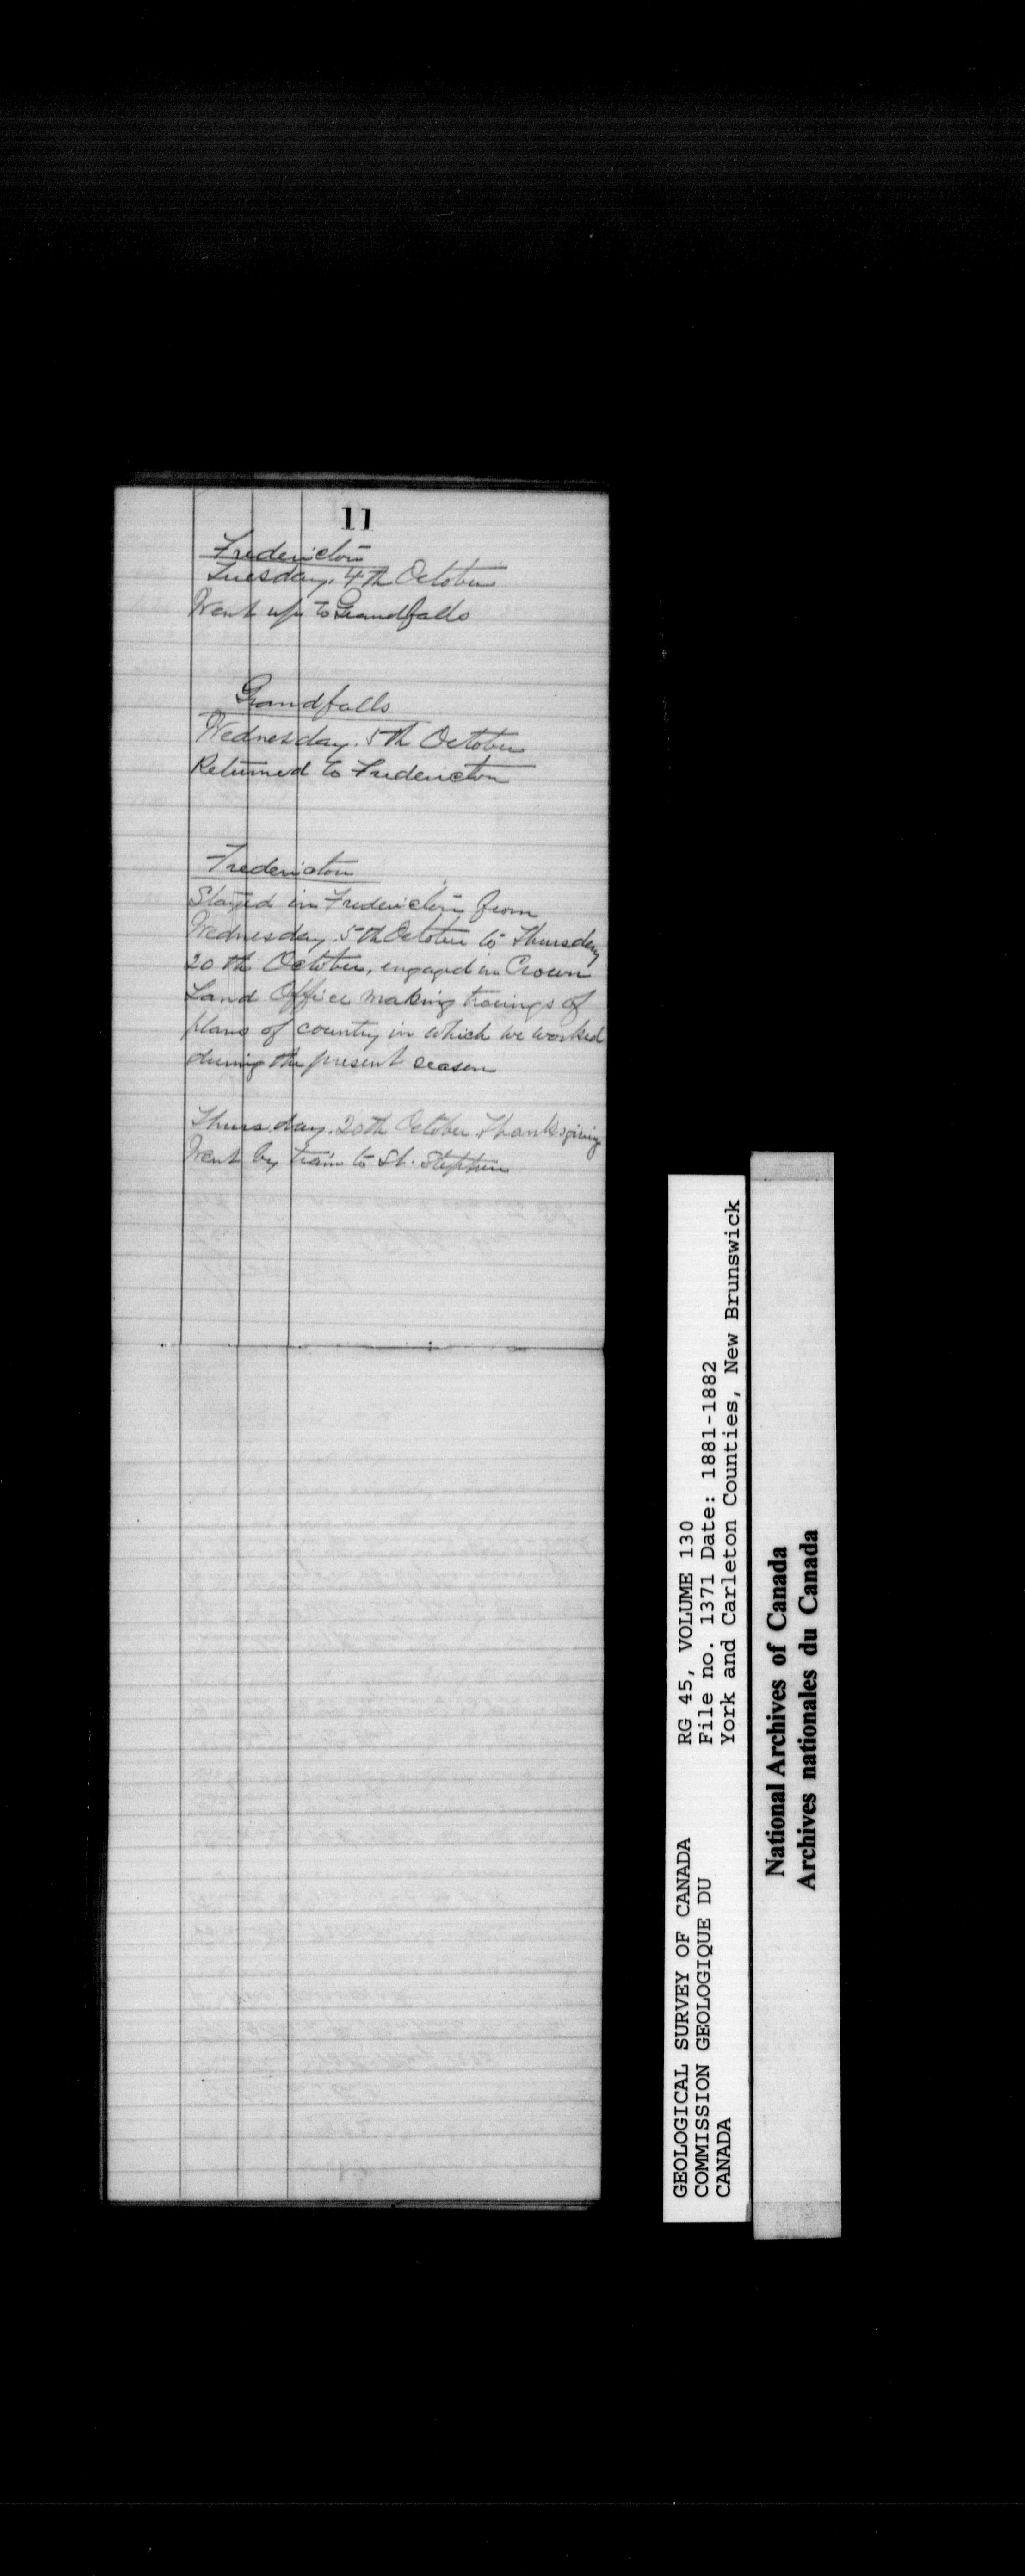 11
Fredericton
Tuesday, 4th October
Went up to Grandfalls
Grandfalls
Wednesday. 5th October
Returned to Fredericton
Fredericton
Stayed in Fredericton from
Wednesday 5th October to Thursday
20th October, engaged in Crown
Land Office making tracings of
plans of country in which we worked
during the present season
Thursday. 20th October Thanksgiving
Went by train to St. Stephen
GEOLOGICAL SURVEY OF CANADA
COMMISSION GEOLOGIQUE DU
CANADA
RG 45, VOLUME 130
File no. 1371 Date: 1881-1882
York and Carleton Counties, New Brunswick
National Archives of Canada
Archives nationales du Canada